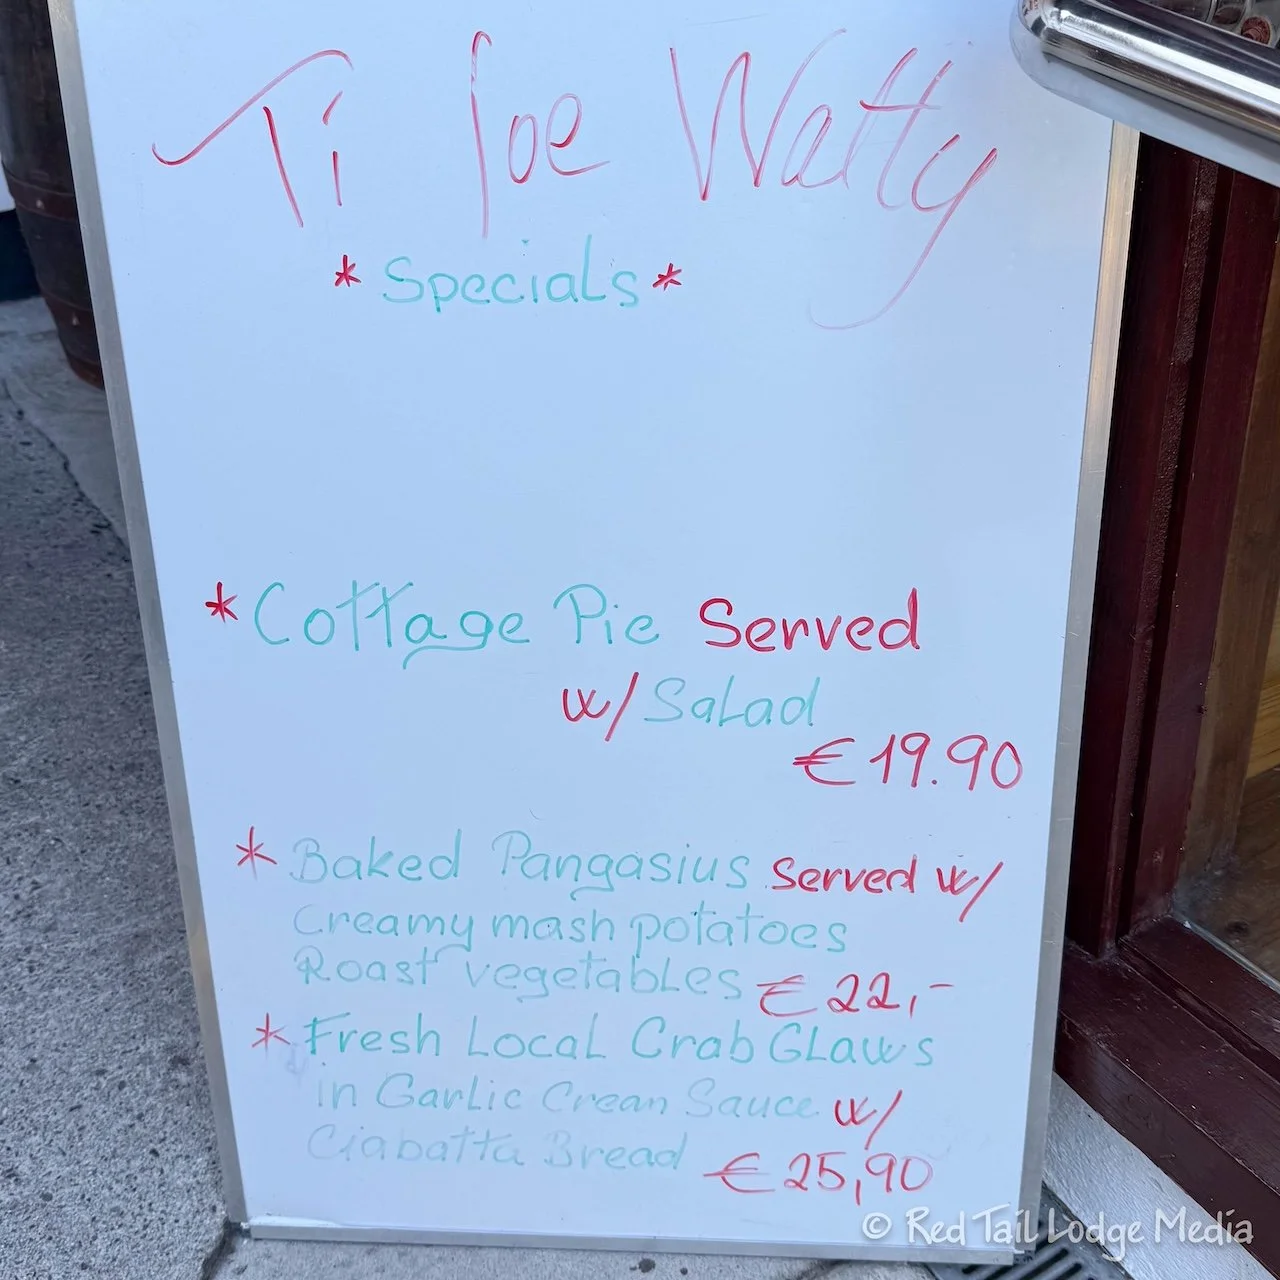 Ti Joe Watty
* Specials *
* Cottage Pie Served
w/ Salad
€ 19.90
* Baked Pangasius Served w/
Creamy mash potatoes
Roast vegetables € 22,-
* Fresh Local Crab Glaws
in Garlic Crean Sauce w/
Ciabatta Bread € 25,90
© Red Tail Lodge Media